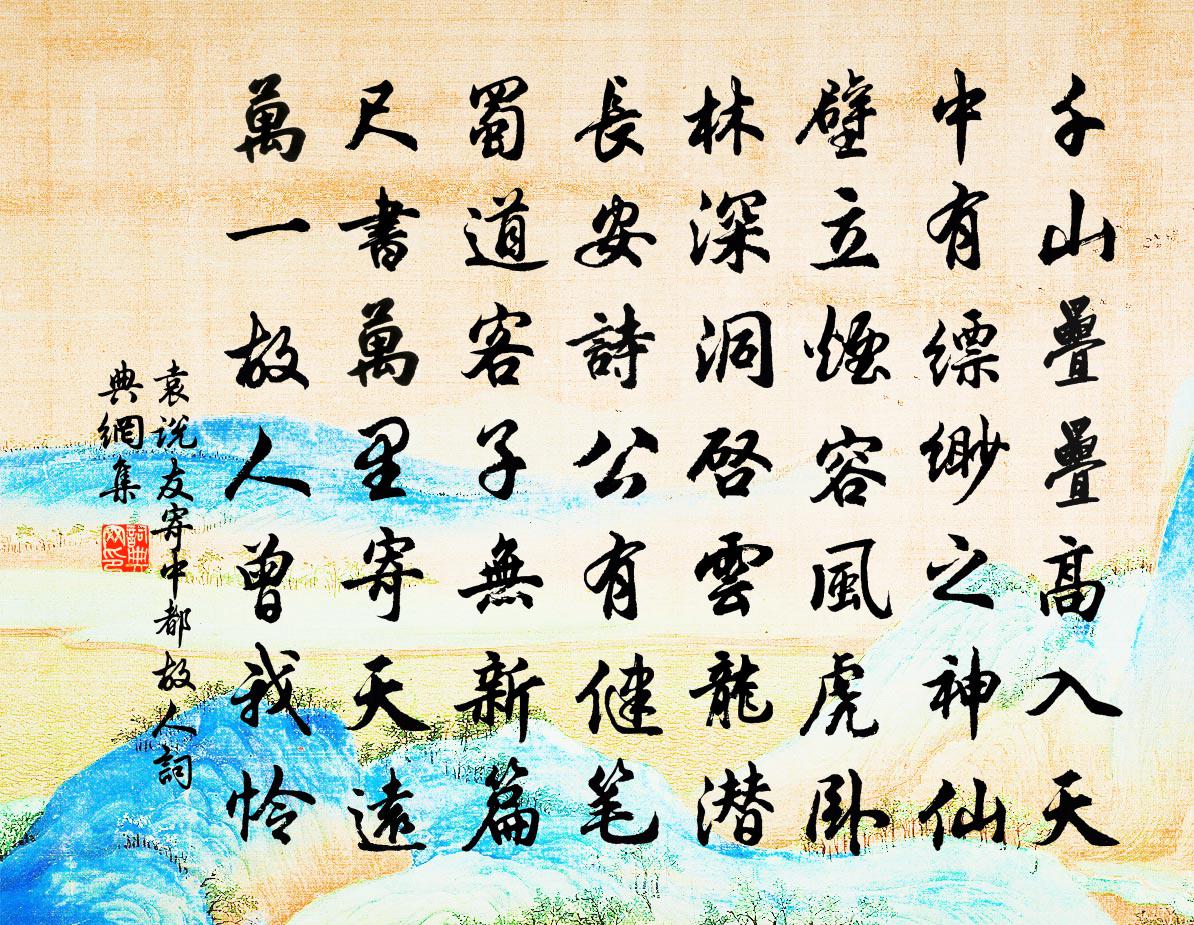 千山疊疊高入天
中有缥缈之神仙
壁立煙容風虎卧
林深洞啓雲龍潜
長安詩公有健笔
蜀道客子無新篇
尺書萬里寄天遠
萬一故人曾我怜
袁说友寄中都故人詞
典網集
詞典網印